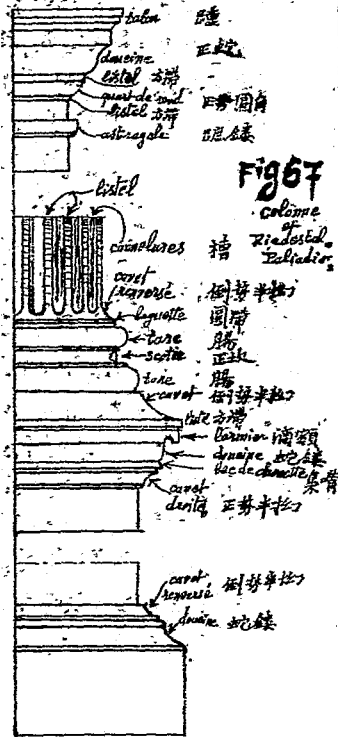 talon 踵
doucine 正蛇
listel 方帶
quart de rond 正勢圓角
listel 方帶
astragale
listel
Fig 67
Colonne
et
Piedestal
Paliadio.
canelures 槽
cavet
renversé 倒勢半拗
baguette 圓帶
tore 腸
scotie 正坎
tore 腸
cavet 倒勢半拗
liste 方帶
larmier 滴頭
doucine 蛇鏤
bec de
cavet
droite 正勢半拗
cavet
renversé 倒勢半拗
doucine 蛇鏤